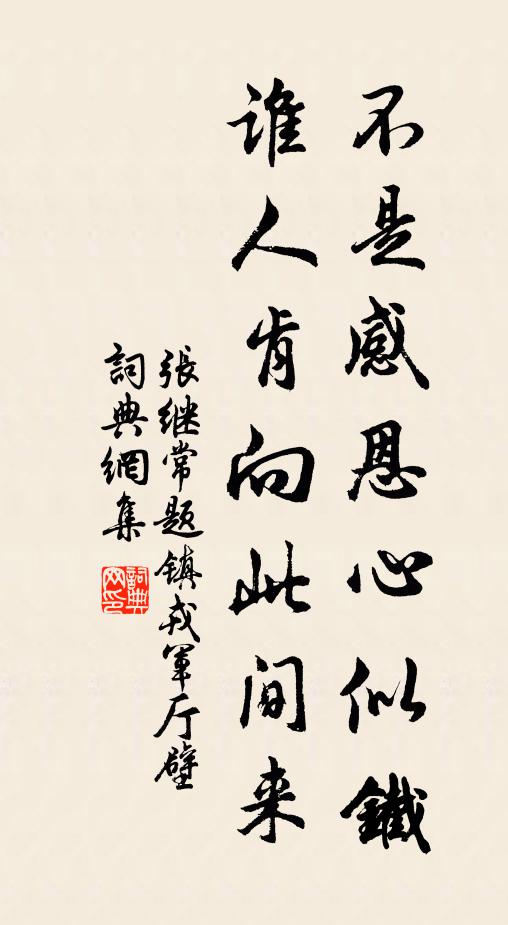 不是感恩心似鐵
谁人肯向此间来
張継常題镇戎軍厅壁
詞典網集
詞典
网印